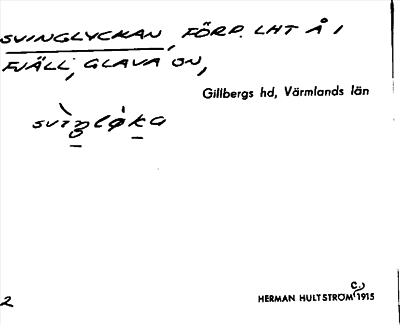 SVINGLYCKAN, FÖRP. LHT Å I
FJÄLL, GLAVA SN,
Gillbergs hd, Värmlands län
2
HERMAN HULTSTRÖM C.) 1915